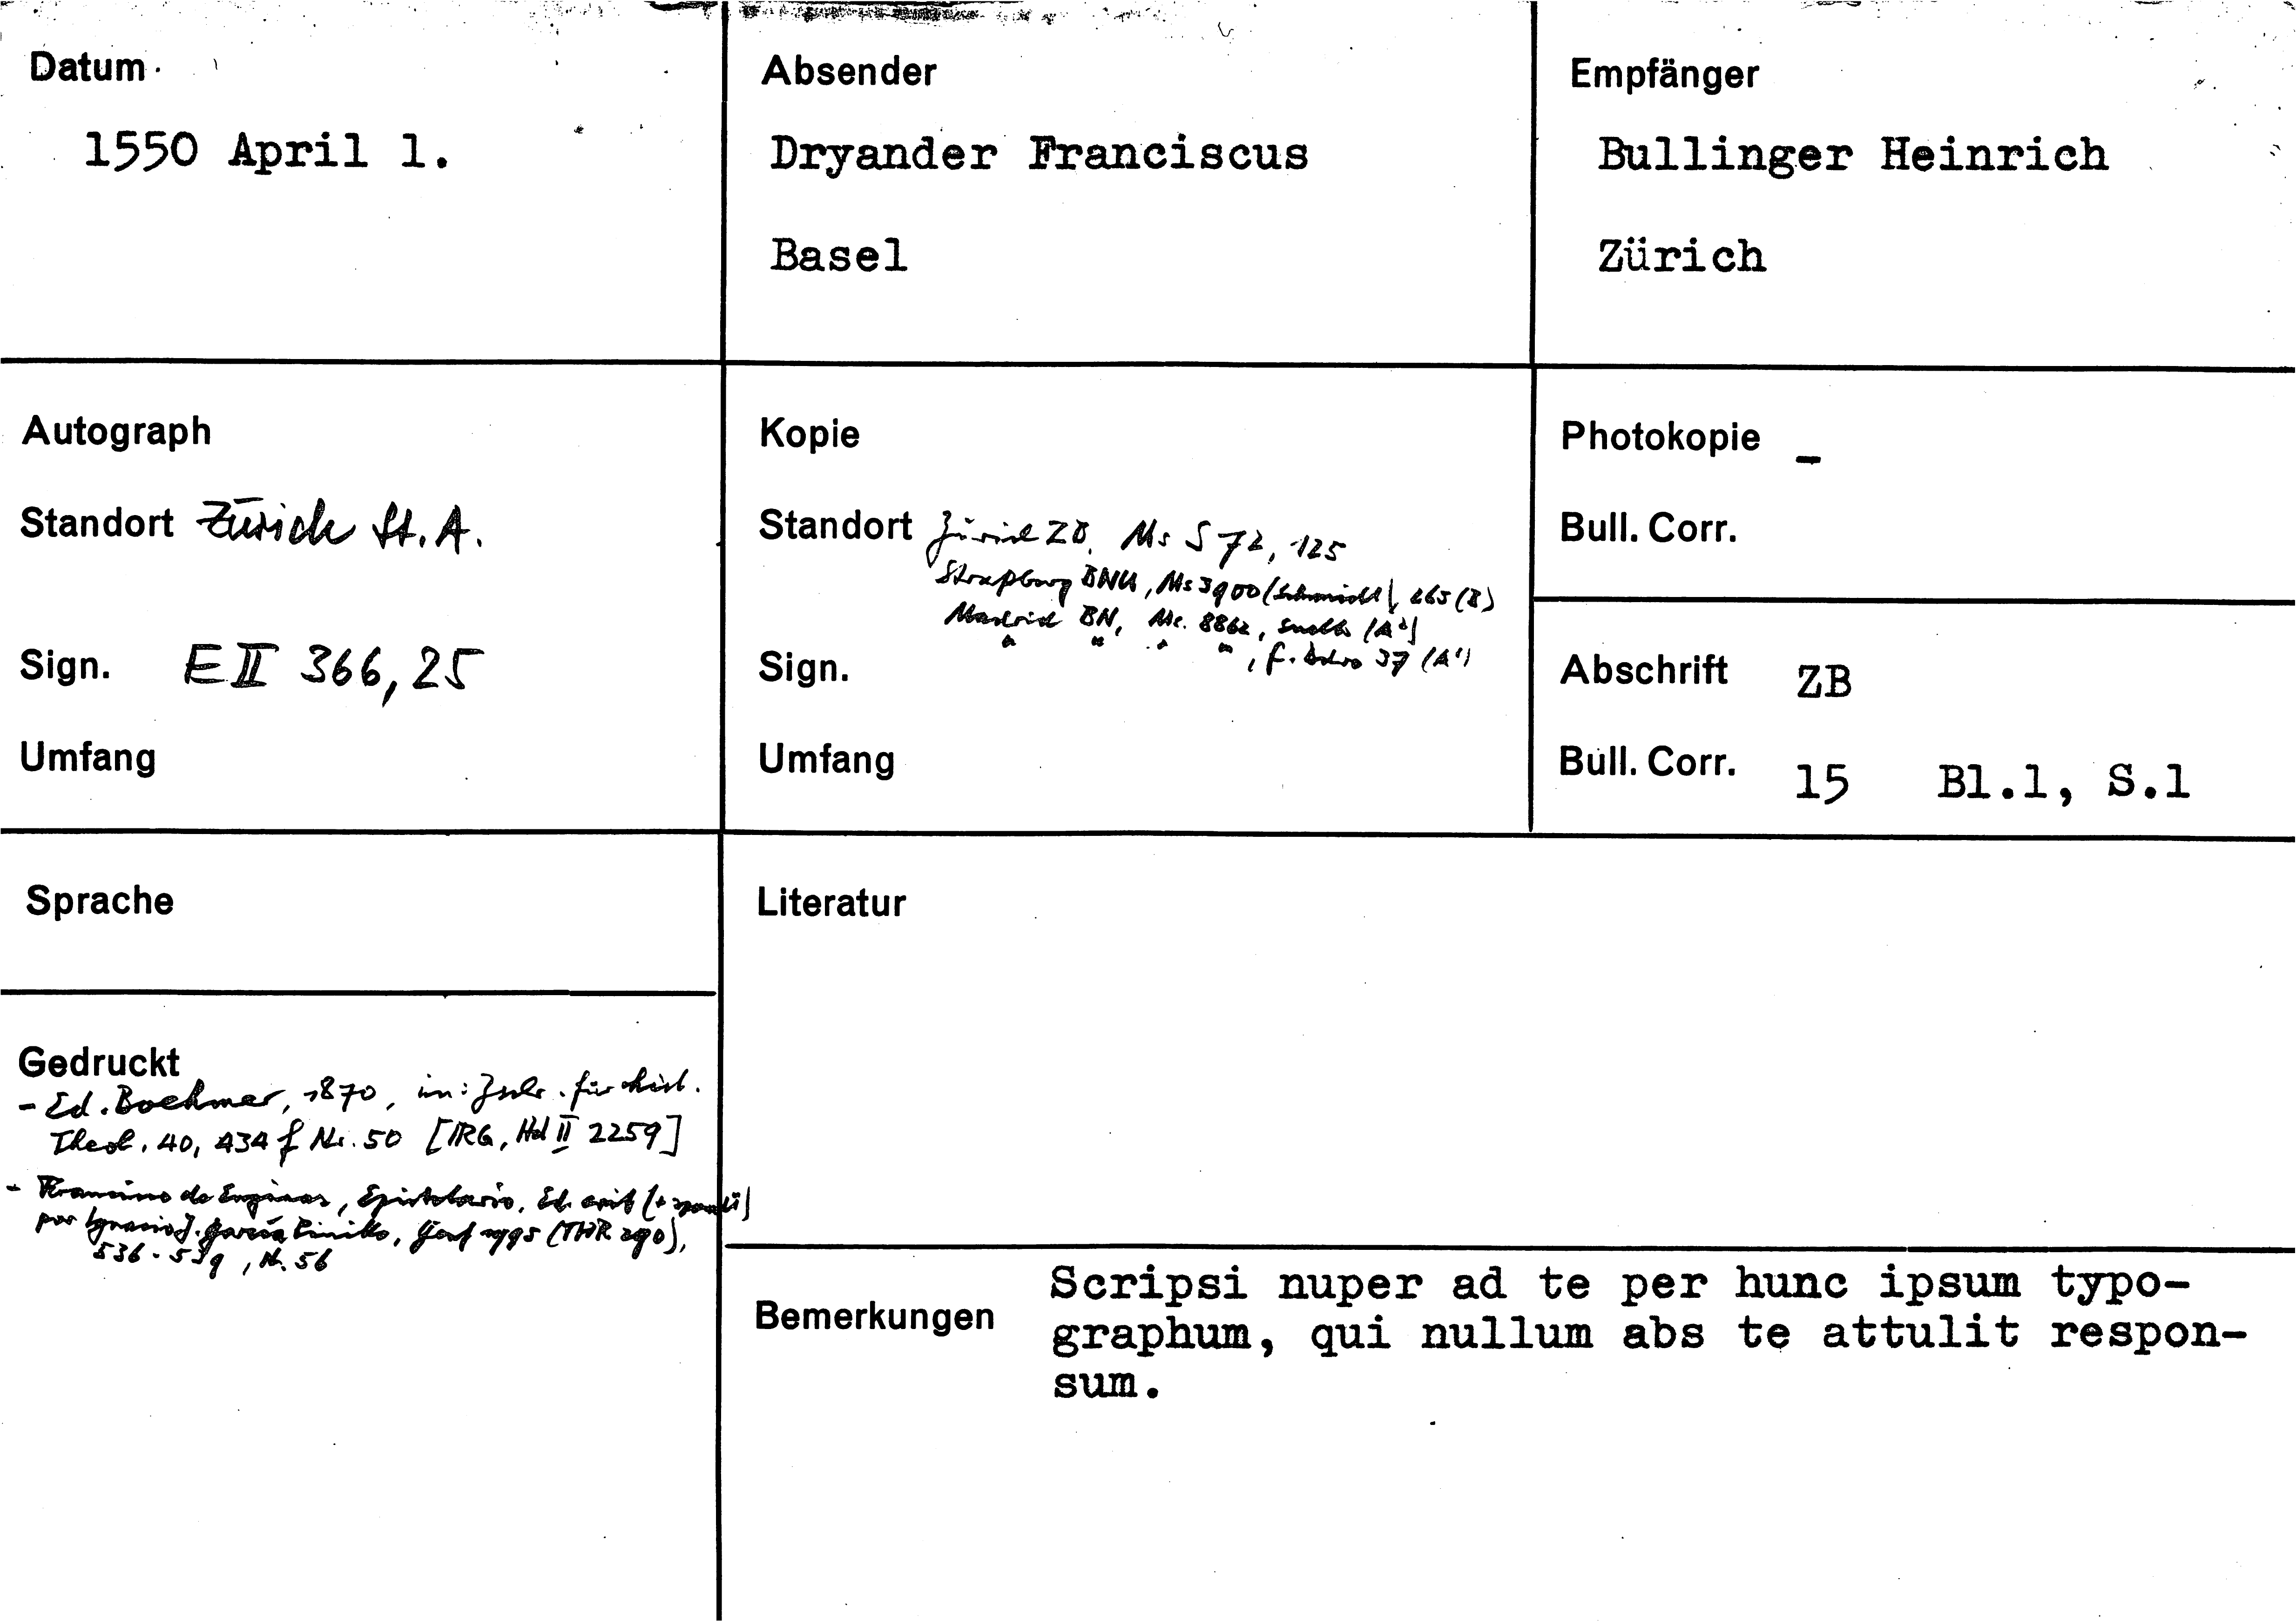 Datum
1550 April 1.
Absender
Dryander Franciscus
Basel
Empfänger
Bullinger Heinrich
Zürich
Autograph
Standort Zürich St. A.
Sign. E II 366, 25
Umfang
Kopie
Standort Zürich ZB, Ms S 72, 125
Straßburg BNU, Ms 3900 (Schmidt), 265 (B)
Madrid BN, Ms. 8862, (A²)
" " " ", f. 37 (A¹)
Sign.
Umfang
Photokopie –
Bull. Corr.
Abschrift ZB
Bull. Corr. 15 Bl.1, S.1
Sprache
Gedruckt
- Ed. Boehmer, 1870, in: Zschr. für hist.
Theol. 40, 434 f Nr. 50 [IRG, Hd II 2259]
- Francisco de Enzinas, Epistolario, Ed. crit
por Ignacio J. García Pinilla, Genf 1995 (THR 290),
536-539, Nr. 56
Literatur
Bemerkungen
Scripsi nuper ad te per hunc ipsum typo-
graphum, qui nullum abs te attulit respon-
sum.